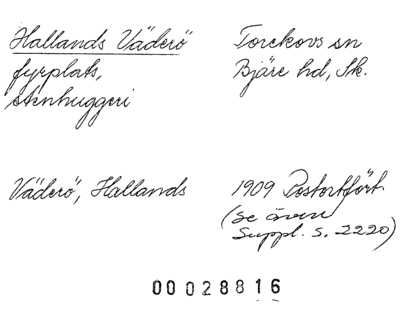 Hallands Väderö
fyrplats,
stenhuggeri
Torekovs sn
Bjäre hd, Sk.
Väderö, Hallands
1909 Postortfört.
(se även
Suppl. s. 2220)
00028816